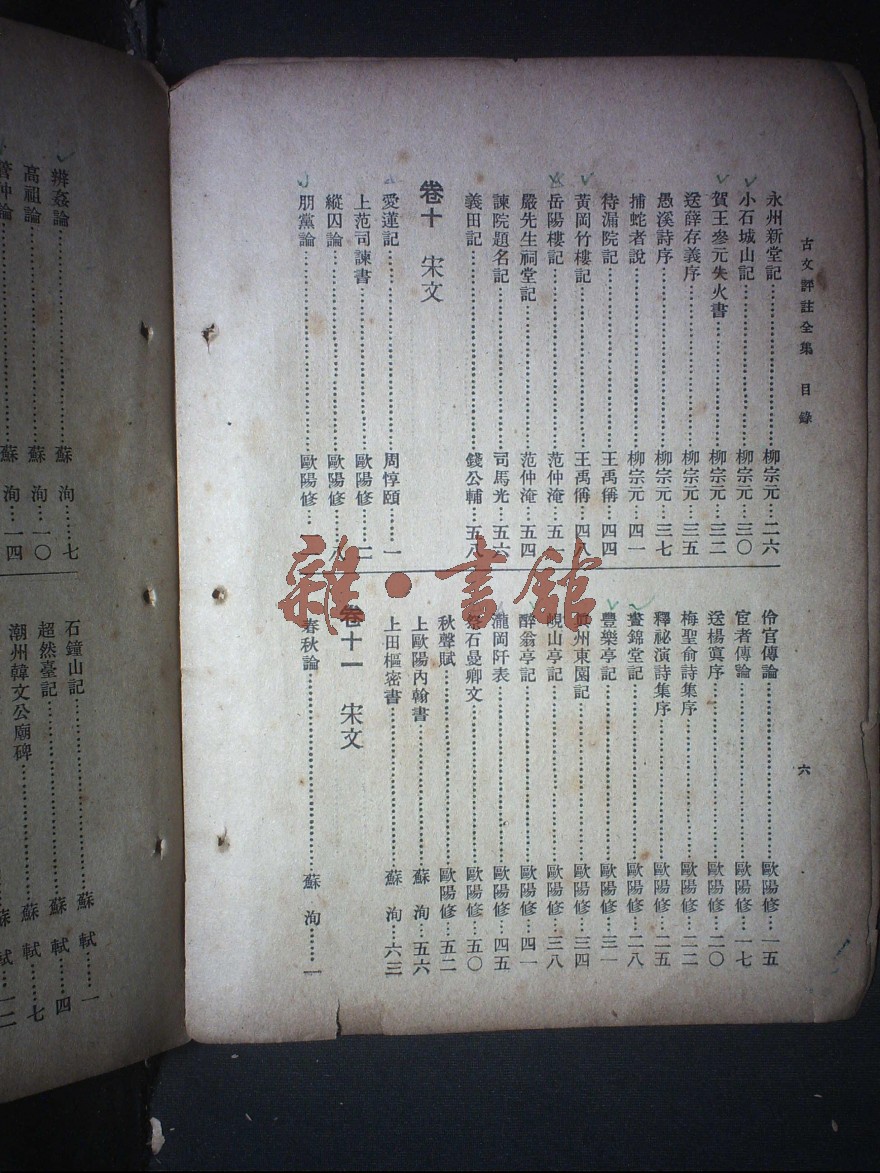 古文評註全集　目錄
六
永州新堂記…柳宗元…二六
小石城山記…柳宗元…三〇
賀王參元失火書…柳宗元…三二
送薛存義序…柳宗元…三五
愚溪詩序…柳宗元…三七
捕蛇者說…柳宗元…四一
待漏院記…王禹偁…四四
黃岡竹樓記…王禹偁…四八
岳陽樓記…范仲淹…五一
嚴先生祠堂記…范仲淹…五四
諫院題名記…司馬光…五六
義田記…錢公輔…五八
卷十　宋文
愛蓮記…周惇頤…一
上范司諫書…歐陽修…二
縱囚論…歐陽修…八
朋黨論…歐陽修…
伶官傳論…歐陽修…一五
宦者傳論…歐陽修…一七
送楊寘序…歐陽修…二〇
梅聖俞詩集序…歐陽修…二二
釋祕演詩集序…歐陽修…二五
晝錦堂記…歐陽修…二八
豐樂亭記…歐陽修…三一
真州東園記…歐陽修…三四
峴山亭記…歐陽修…三八
醉翁亭記…歐陽修…四一
瀧岡阡表…歐陽修…四五
祭石曼卿文…歐陽修…五〇
秋聲賦…歐陽修…五二
上歐陽內翰書…蘇洵…五六
上田樞密書…蘇洵…六三
卷十一　宋文
春秋論…蘇洵…一
辨姦論…蘇洵…七
高祖論…蘇洵…一〇
管仲論…洵…一四
石鐘山記…蘇軾…一
超然臺記…蘇軾…四
潮州韓文公廟碑…蘇軾…七
蘇軾…一二
雜·書館